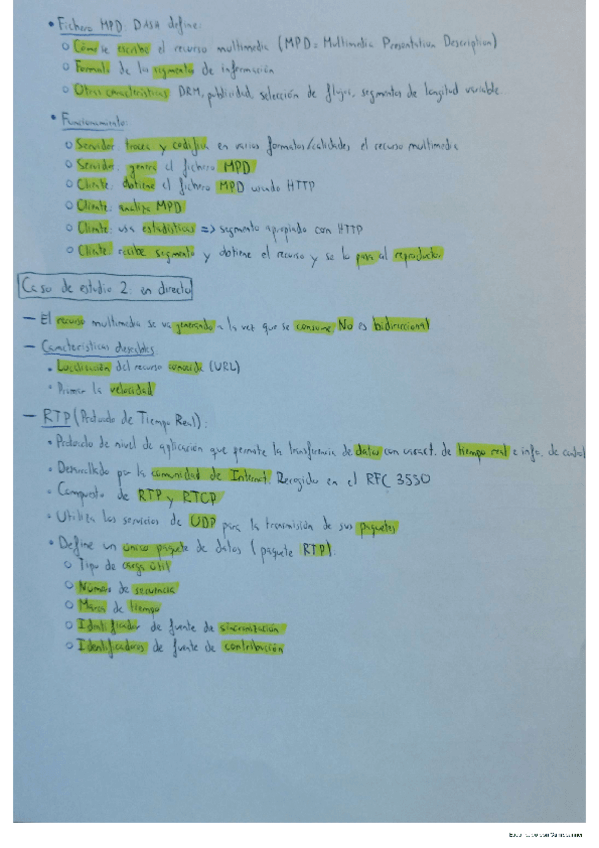 • Fichero MPD: DASH define:
o Cómo se escribe el recurso multimedia (MPD = Multimedia Presentation Description)
o Formato de los segmentos de información
o Otras características: DRM, publicidad, selección de flujos, segmentos de longitud variable.
• Funcionamiento:
o Servidor: trocea y codifica en varios formatos/calidades el recurso multimedia
o Servidor: genera el fichero MPD
o Cliente: obtiene el fichero MPD usando HTTP
o Cliente: analiza MPD
o Cliente: usa estadísticas => segmento apropiado con HTTP
o Cliente: recibe segmento y obtiene el recurso y se lo pasa al reproductor
Caso de estudio 2: en directo
— El recurso multimedia se va generando a la vez que se consume. No es bidireccional
— Características deseables:
• Localización del recurso conocida (URL)
• Primar la velocidad
— RTP (Protocolo de Tiempo Real):
• Protocolo de nivel de aplicación que permite la transferencia de datos con caract. de tiempo real e info. de control
• Desarrollado por la comunidad de Internet. Recogido en el RFC 3550
• Compuesto de RTP y RTCP
• Utiliza los servicios de UDP para la transmisión de sus paquetes
• Define un único paquete de datos (paquete RTP)
o Tipo de carga útil
o Número de secuencia
o Marca de tiempo
o Identificador de fuente de sincronización
o Identificadores de fuente de contribución